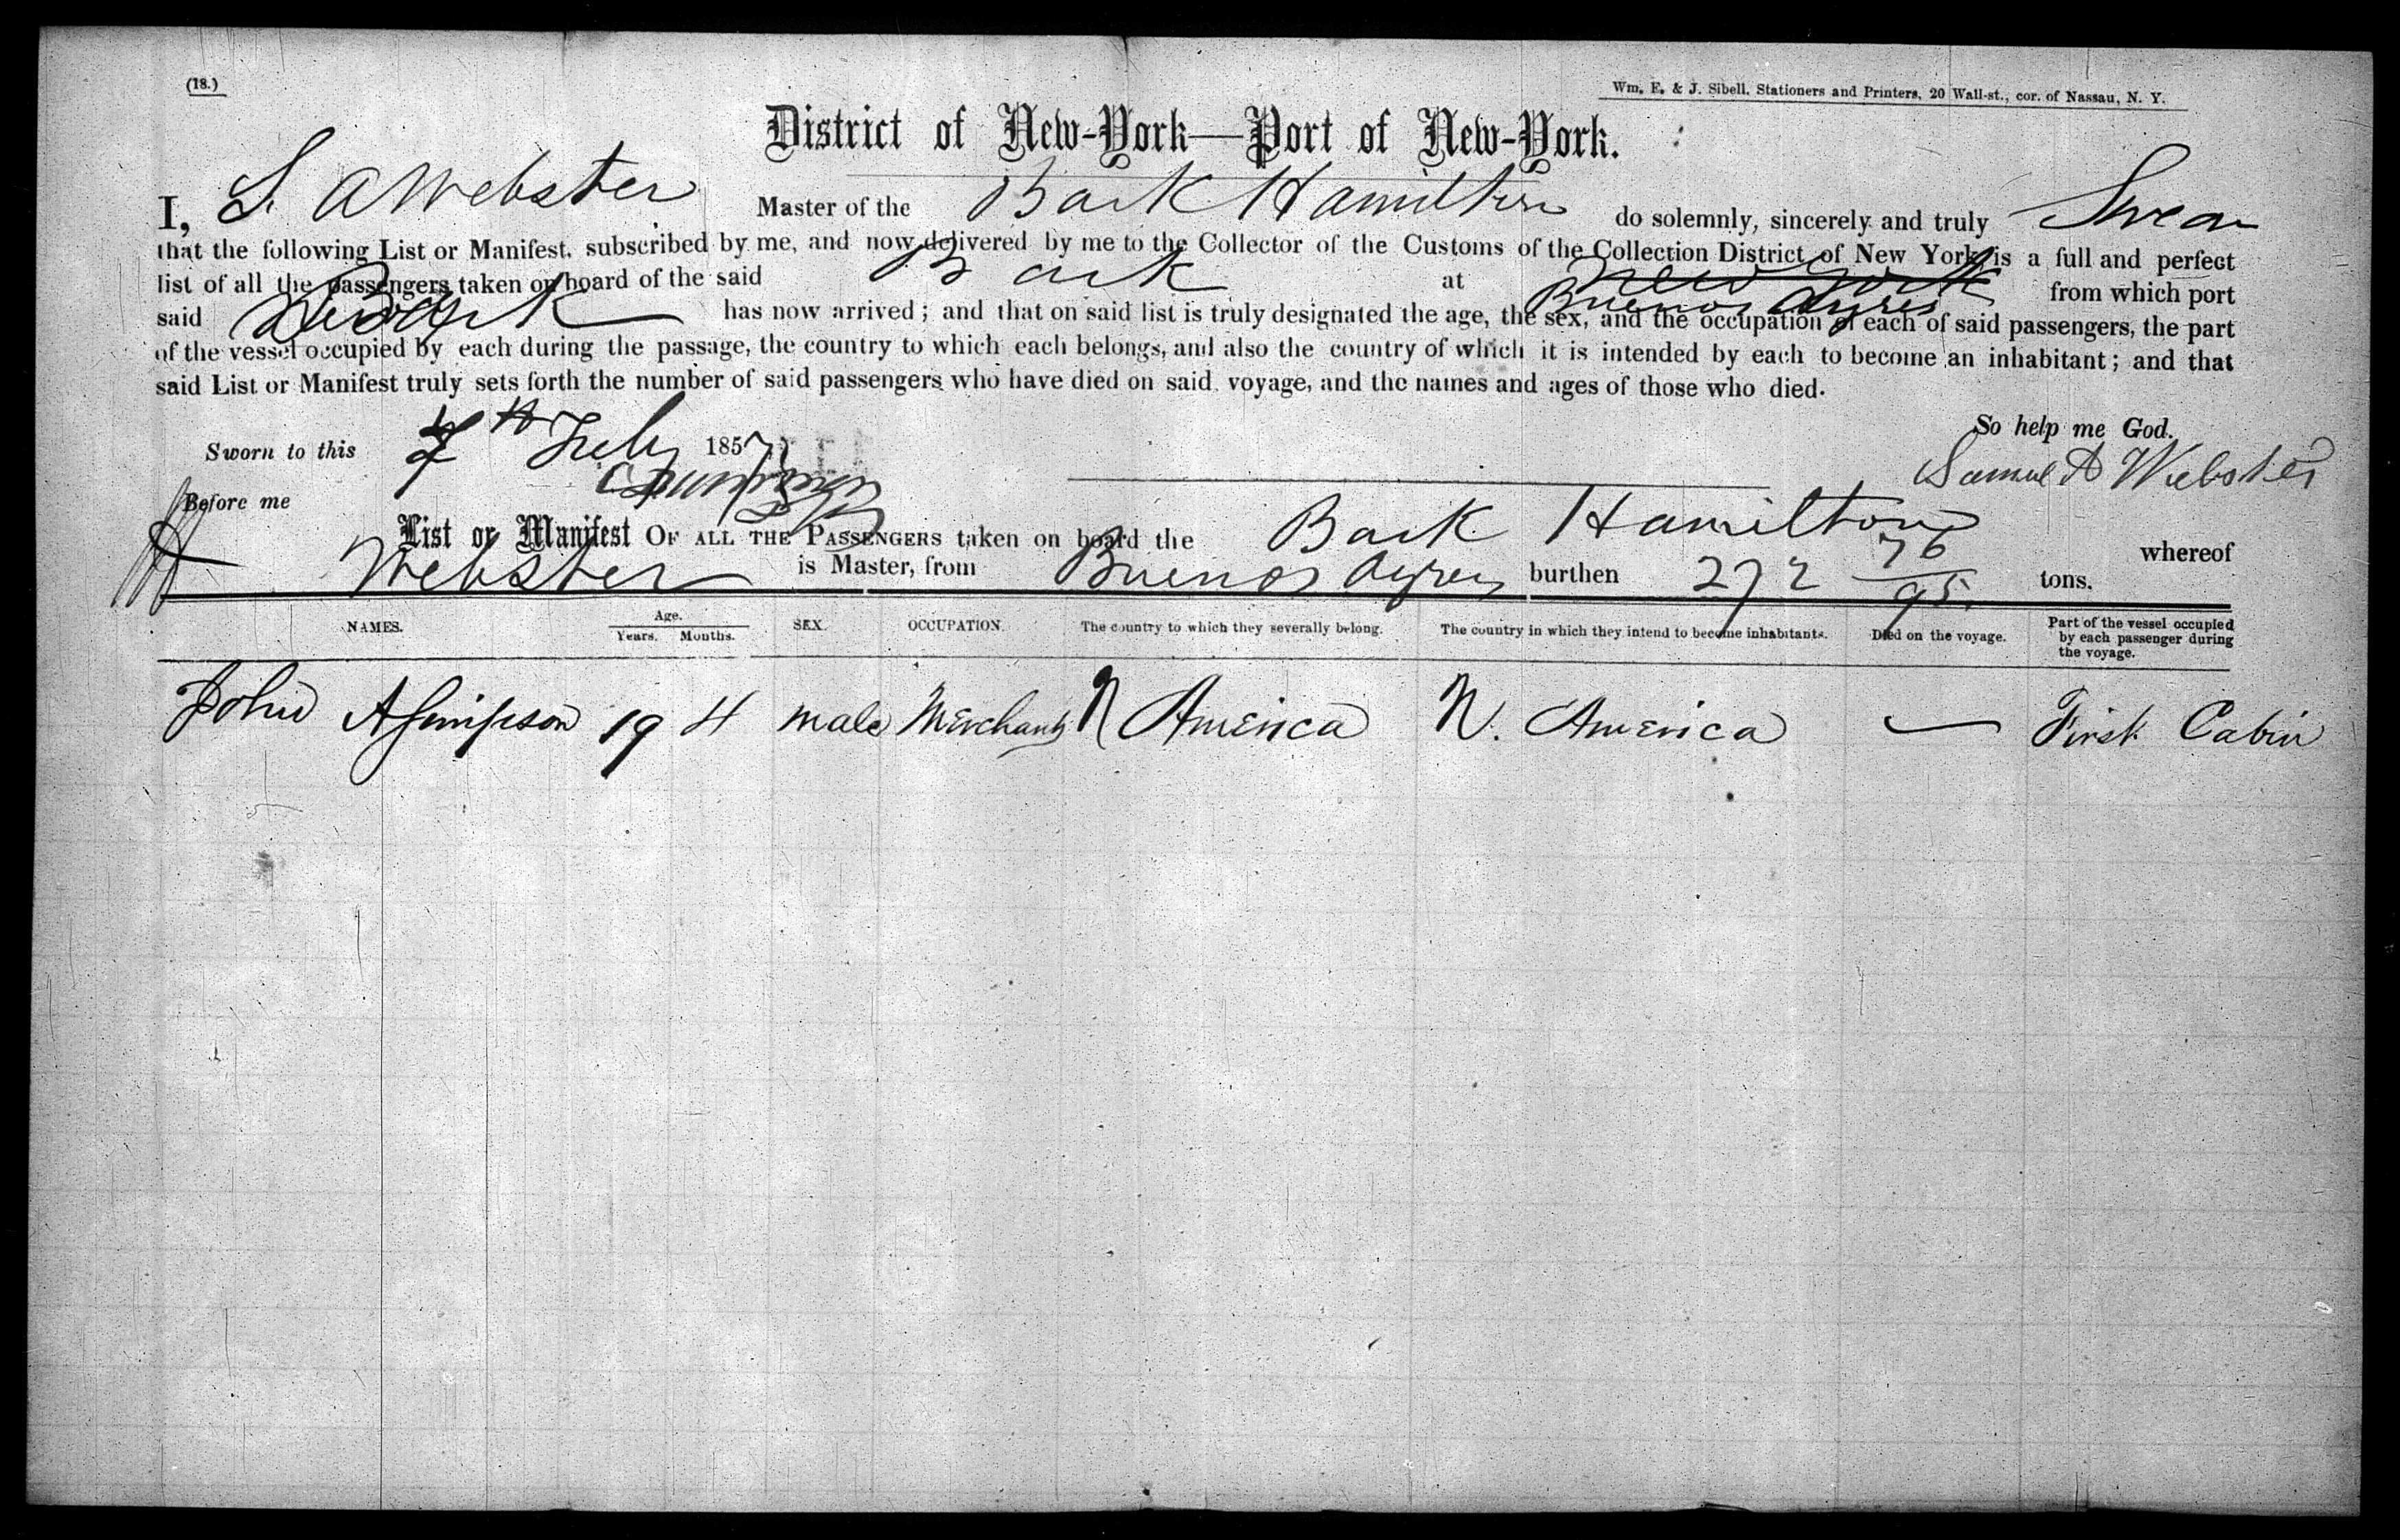 (18.)
Wm. E. & J. Sibell, Stationers and Printers, 20 Wall-st., cor. of Nassau, N. Y.
District of New-York—Port of New-York.
I, S. A Webster Master of the Bark Hamilton do solemnly, sincerely and truly Swear
that the following List or Manifest, subscribed by me, and now delivered by me to the Collector of the Customs of the Collection District of New York, is a full and perfect
list of all the passengers taken on board of the said Bark at New York Buenos Ayres from which port
said Bark has now arrived; and that on said list is truly designated the age, the sex, and the occupation of each of said passengers, the part
of the vessel occupied by each during the passage, the country to which each belongs, and also the country of which it is intended by each to become an inhabitant; and that
said List or Manifest truly sets forth the number of said passengers who have died on said voyage, and the names and ages of those who died.
So help me God.
Sworn to this 7th July 1857
Samuel A Webster
Before me
List or Manifest OF ALL THE PASSENGERS taken on board the Bark Hamilton whereof
Webster is Master, from Buenos Ayres burthen 272 76/95 tons.
NAMES. Age. Years. Months. SEX. OCCUPATION. The country to which they severally belong. The country in which they intend to become inhabitants. Died on the voyage. Part of the vessel occupied by each passenger during the voyage.
John A Simpson 19 4 male Merchant N America N. America — First Cabin